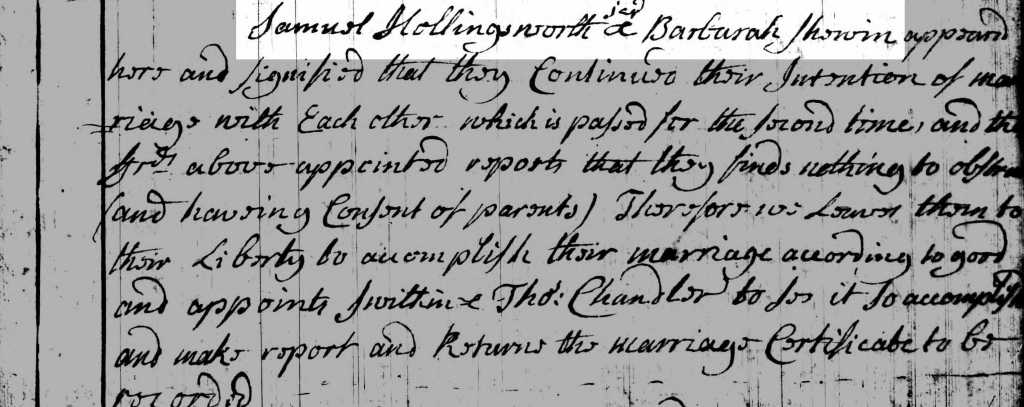 Samuel Hollingsworth & Barbarah Shewin appeard
here and signified that they Continued their Intention of mar
riage with Each other which is passed for the second time, and the
frds above appointed reports that they finds nothing to obstru
(and haveing Consent of parents) Therefore we Leaves them to
their Liberty to accomplish their marriage according to good
and appoints Swithin & Tho: Chandler to see it so accomplish
and make report and Returne the marriage Certificate to be
recorded